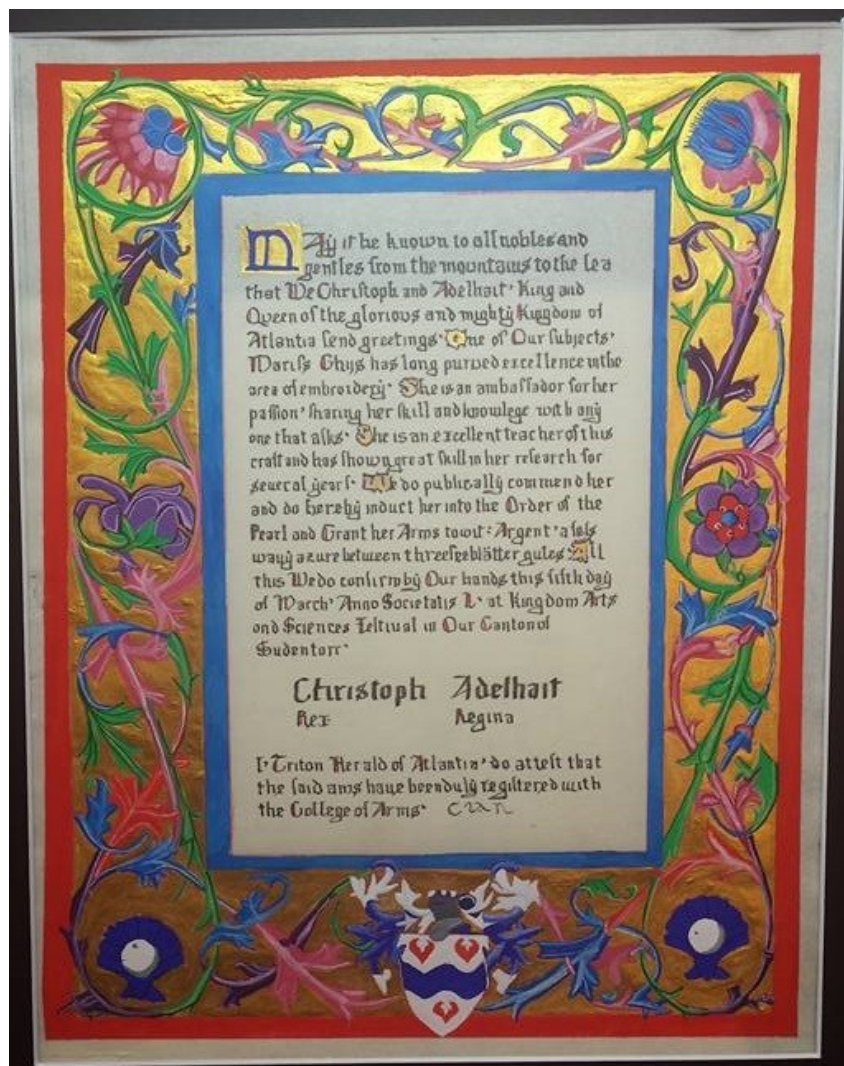 MAy it be known to all nobles and
gentles from the mountains to the Sea
that We Christoph and Adelhait· King and
Queen of the glorious and mighty Kingdom of
Atlantia send greetings· One of Our subjects·
Mariss Ghijs has long pursued excellence in the
area of embroidery· She is an ambassador for her
passion· sharing her skill and knowlege with any
one that asks· She is an excellent teacher of this
craft and has shown great skill in her research for
several years· We do publically commend her
and do hereby induct her into the Order of the
Pearl and Grant her Arms to wit: Argent· a fess
wavy azure between three seeblätter gules· All
this We do confirm by Our hands this fifth day
of March· Anno Societatis L· at Kingdom Arts
and Sciences Festival in Our Canton of
Sudentorr·
Christoph Adelhait
Rex Regina
I· Triton Herald of Atlantia· do attest that
the said arms have been duly registered with
the College of Arms·